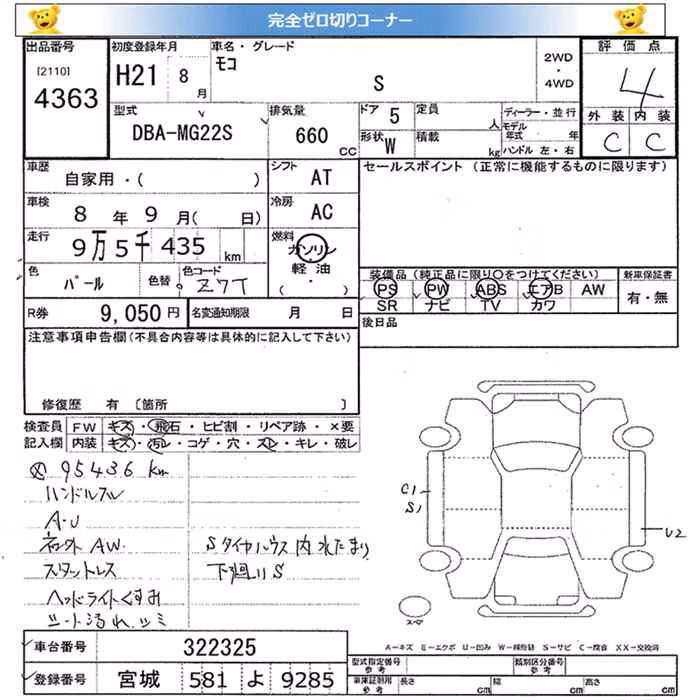 完全ゼロ切りコーナー
出品番号
[2110]
4363
初度登録年月
H21 8 月
車名・グレード
モコ
S
2WD
・
4WD
評価点
4
外装 内装
C C
型式
DBA-MG22S
排気量
660 CC
ドア 5
定員 人
形状 W
積載 kg
ディーラー・並行
モデル年式 年
ハンドル 左・右
車歴
自家用・( )
シフト
AT
セールスポイント (正常に機能するものに限ります)
車検
8 年 9 月( 日)
冷房
AC
走行
9万5千435 km
燃料
ガソリン
軽油
( ・ )
色
パール
色替
色コード
Z7T
装備品 (純正品に限り○をつけてください)
PS PW ABS エアB AW
SR ナビ TV カワ
新車保証書
有・無
R券 9,050円
名変通知期限 月 日
後日品
注意事項申告欄(不具合内容等は具体的に記入して下さい)
修復歴 有 〔箇所 〕
検査員 FW キズ・飛石・ヒビ割・リペア跡・×要
記入欄 内装 キズ・汚レ・コゲ・穴・スレ・キレ・破レ
95436 km
ハンドルスレ
A-U
ネコ外 AW
スタットレス
ヘッドライトくすみ
シート汚れ、シミ
Sタイヤハウス内 水たまり
下廻りS
C1
S1
U2
スペア
A-キズ E-エクボ U-凹み W-補修跡 S-サビ C-腐食 XX-交換済
車台番号 322325
登録番号 宮城 581 よ 9285
型式指定番号 参考
類別区分番号 参考
車庫証明用 参考 長さ cm 幅 cm 高さ cm